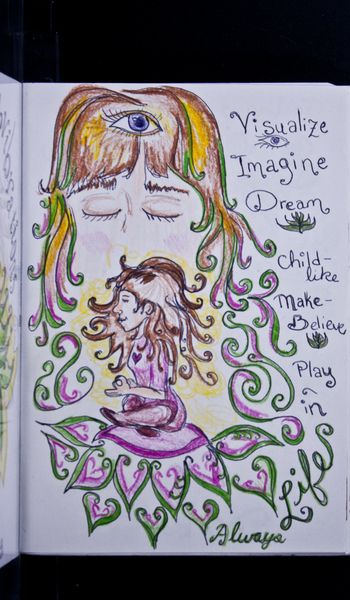 Visualize
Imagine
Dream
Child-
like
Make-
Believe
Play
in
Life
Always